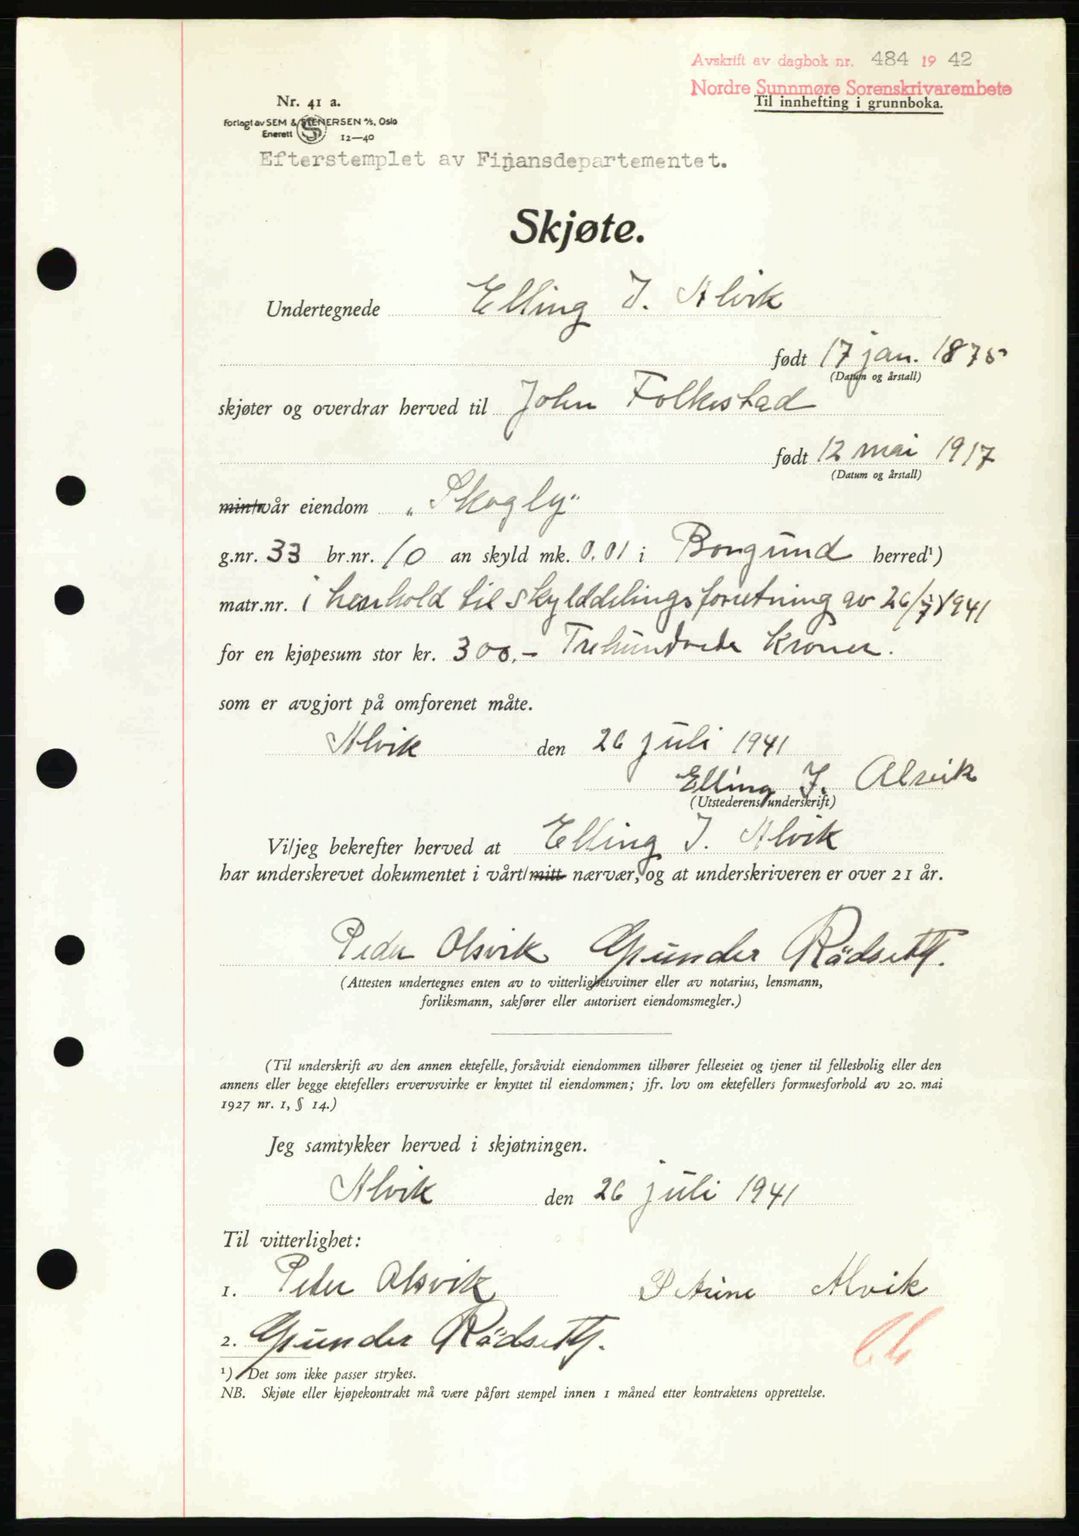 Avskrift av dagbok nr. 484 1942
Nordre Sunnmøre Sorenskrivarembete
Til innhefting i grunnboka.
Nr. 41 a.
Forlagt av SEM & STENERSEN A/S, Oslo
Enerett S 12—40
Efterstemplet av Finansdepartementet.
Skjøte.
Undertegnede Elling J. Alvik
født 17 jan. 1875
(Datum og årstall)
skjøter og overdrar herved til John Folkestad
født 12 mai 1917
(Datum og årstall)
min/vår eiendom „Skogly"
g.nr. 33 br.nr. 10 an skyld mk. 0,01 i Borgund herred¹)
matr.nr. i henhold til skylddelingsforretning av 26/7 1941
for en kjøpesum stor kr. 300,- Trehundrede kroner.
som er avgjort på omforenet måte.
Alvik den 26 juli 1941
Elling J. Alsvik
(Utstederens underskrift)
Vi/jeg bekrefter herved at Elling J. Alvik
har underskrevet dokumentet i vårt/mitt nærvær, og at underskriveren er over 21 år.
Peder Alsvik Gunder Rødseth.
(Attesten undertegnes enten av to vitterlighetsvitner eller av notarius, lensmann,
forliksmann, sakfører eller autorisert eiendomsmegler.)
(Til underskrift av den annen ektefelle, forsåvidt eiendommen tilhører felleseiet og tjener til fellesbolig eller den
annens eller begge ektefellers ervervsvirke er knyttet til eiendommen; jfr. lov om ektefellers formuesforhold av 20. mai
1927 nr. 1, § 14.)
Jeg samtykker herved i skjøtningen.
Alvik den 26 juli 1941
Til vitterlighet:
1. Peder Alsvik Petrine Alvik
2. Gunder Rødseth.
¹) Det som ikke passer strykes.
NB. Skjøte eller kjøpekontrakt må være påført stempel innen 1 måned etter kontraktens opprettelse.